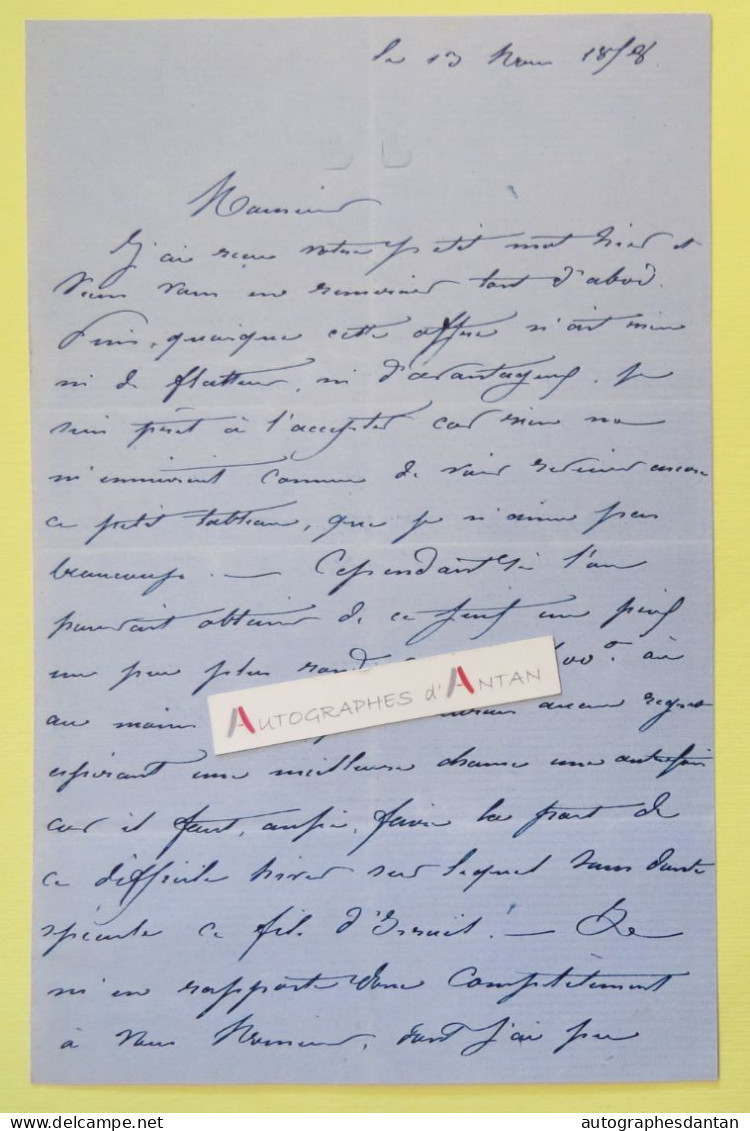 le 13 Nov. 1878
Monsieur
J'ai reçu votre petit mot hier et
viens vous en remercier tout d'abord.
Puis, quoique cette offre n'ait rien
ni de flatteur, ni d'avantageux, je
suis prêt à l'accepter car rien ne
m'ennuierait comme de voir revenir encore
ce petit tableau, que je n'aime pas
beaucoup. — Cependant si l'on
pouvait obtenir de ce juif une pièce
un peu plus 
AUTOGRAPHES d'ANTAN
au moins aucun regret
espérant une meilleure chance une autre fois
car il faut, aussi, faire la part de
ce difficile hiver sur lequel sans doute
spécule ce fils d'Israël! — Je
m'en rapporte donc complètement
à vous Monsieur, dont j'ai pu
delcampe.net
autographesdantan